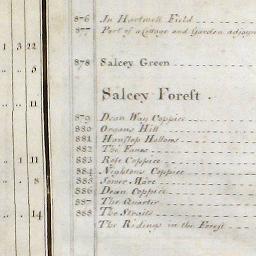 876 In Hartwell Field
877 Part of a Cottage and Garden adjoin
1 3 22
878 Salcey Green
.. .. 5
Salcey Forest .
.. .. 11
879 Dean Way Coppice
880 Organs Hill
881 Hanslop Hallows
882 The Lawn
.. 1 11 883 Rose Coppice
884 Nightons Coppice
.. .. 8 885 Sower Mare
886 Dean Coppice
887 The Quarter
.. .. 14 888 The Straits
The Ridings in the Forest